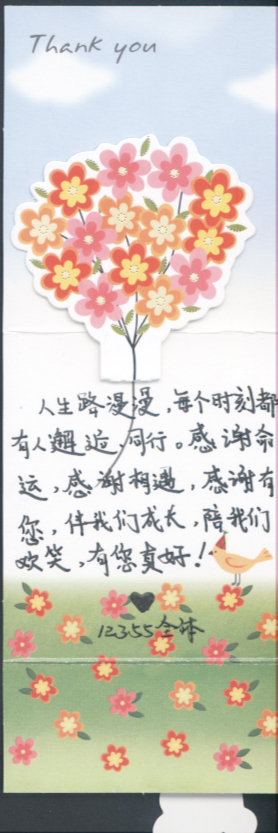 Thank you
人生路漫漫，每个时刻都
有人邂逅、同行。感谢命
运，感谢相遇，感谢有
您，伴我们成长，陪我们
欢笑，有您真好！
12355全体